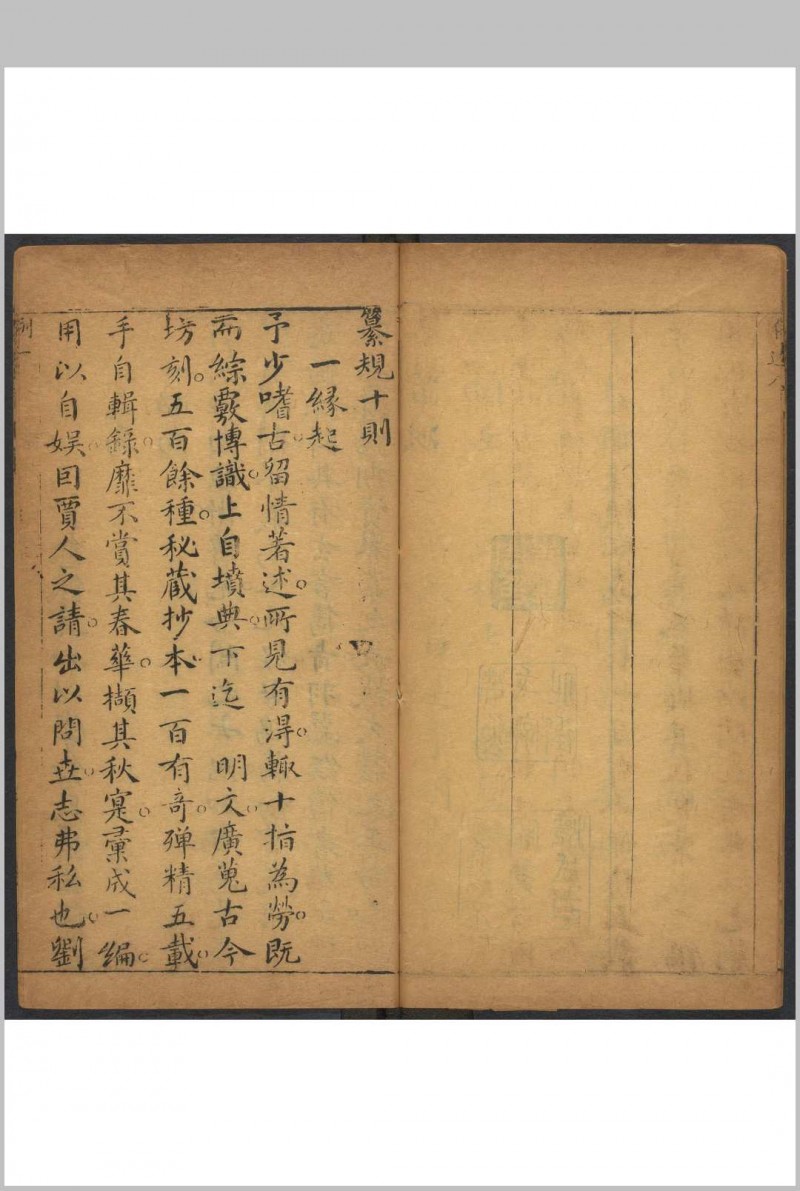 纂規十則
一緣起
予少嗜古。留情著述。所見有得。輙十指為勞。既
而綜覈博識。上自墳典。下迄 明文。廣蒐古今
坊刻。五百餘種。秘蔵抄本。一百有奇。殫精五載。
手自輯錄。靡不賞其春華。擷其秋寔。彙成一編。
用以自娛。囙賈人之請。出以問𠀍。志弗私也。劉